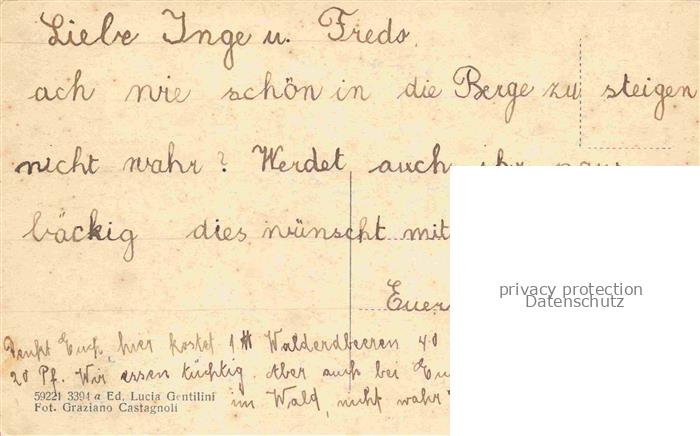 Liebe Inge u. Fredo,
ach wie schön in die Berge zu steigen
nicht wahr? Werdet auch ihr
bäckig dies wünscht mit
Euer
Denkt Euch, hier kostet 1 ℔ Walderdbeeren 40
20 Pf. Wir essen tüchtig. Aber auch bei Eu
im Wald, nicht wahr?
59221 3394 a Ed. Lucia Gentilini
Fot. Graziano Castagnoli
privacy protection
Datenschutz